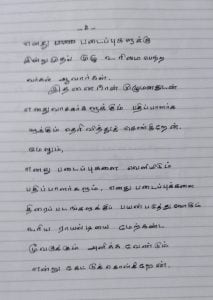 - 2 -
எனது படைப்புகளுக்கு
இன்று முதல் முழு உரிமை பெற்ற
வர்கள் ஆவார்கள்.
இதனை நான் முழுமனதுடன்
எனது வாசகர்களுக்கும் பதிப்பாளர்க
ளுக்கும் தெரிவித்துக் கொள்கிறேன்.
மேலும்,
எனது படைப்புகளை வெளியிடும்
பதிப்பாளர்களும், எனது படைப்புக்களை
திரைப்படங்களுக்குப் பயன்படுத்துவோரும்
உரிய ராயல்டியை மேற்கண்ட
மூவருக்கும் அளிக்க வேண்டும்
என்று கேட்டுக்கொள்கிறேன்.